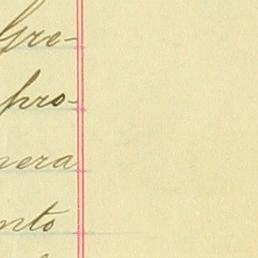 Gre-
pro-
nera
nto